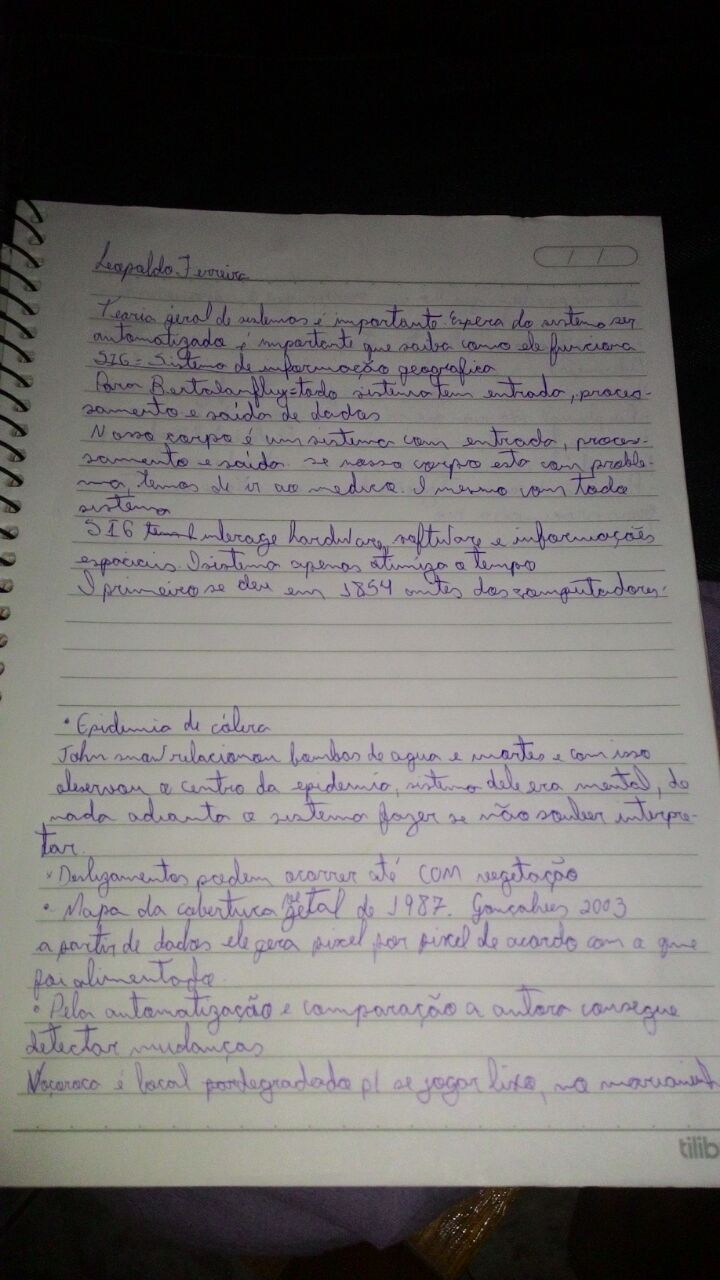 Leopoldo Ferreira
Teoria geral de sistemas é importante espera do sistema ser
automatizado, é importante que saiba como ele funciona
SIG = Sistema de informação geografica
Para Bertalanffy = todo sistema tem entrada, proces-
samento e saída de dados
Nosso corpo é um sistema com entrada, proces-
samento e saída. se nosso corpo esta com proble-
ma, temos de ir ao medico. O mesmo com todo
sistema
SIG tem interage hardware, software e informações
espaciais. O sistema apenas otimiza o tempo
O primeiro se deu em 1854 antes dos computadores.
• Epidemia de cólera
John snow relacionou bombas de agua e mortes e com isso
observou o centro da epidemia, sistema dele era mental, do
nada adianta o sistema fazer se não souber interpre-
tar.
• Desligamentos podem ocorrer até com vegetação
• Mapa da cobertura vegetal de 1987. Gonçalves 2003
a partir de dados ele gera pixel por pixel de acordo com o que
foi alimentado.
• Pela automatização e comparação a autora consegue
detectar mudanças
é local para degradado p/ se jogar lixo, no
tilib